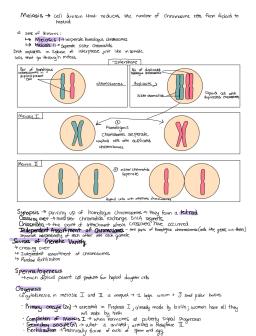 Meiosis → cell division that reduces the number of chromosomes from diploid to haploid
2 sets of divisions:
↳ Meiosis I → separate homologous chromosomes
↳ Meiosis II → separate sister chromatids
DNA replicates in S-phase of interphase just like in somatic cells that go through mitosis
Interphase
Pair of homologous chromosomes in a diploid parent cell
chromosomes duplicate
Pair of duplicated homologous chromosomes
sister chromatids
Diploid cell with duplicated chromosomes
Meiosis I
①
Homologous chromosomes separate
Haploid cells with duplicated chromosomes
Meiosis II
② sister chromatids separate
Haploid cells with unduplicated chromosomes
Synapsis → pairing up of homologous chromosomes → they form a tetrad
Crossing over → nonsister chromatids exchange DNA segments
Chiasmata → the point of attachment where crossing over has occurred
Independent Assortment of Chromosomes →
independently of each other
Sources of Genetic Variety
• crossing over
• Independent assortment of chromosomes
• Random fertilization
Spermatogenesis
→ each diploid parent cell produces four haploid daughter cells
Oogenesis
Cytokinesis in meiosis I and II is unequal → 1 large ovum + 3 mini polar bodies
• Primary oocyte (2n) → arrested in Prophase I, already made by birth; women have all they will make by birth
• Completion of Meiosis I →
• Secondary oocyte (n) → what is ovulated, arrested in Metaphase II
• Fertilization →